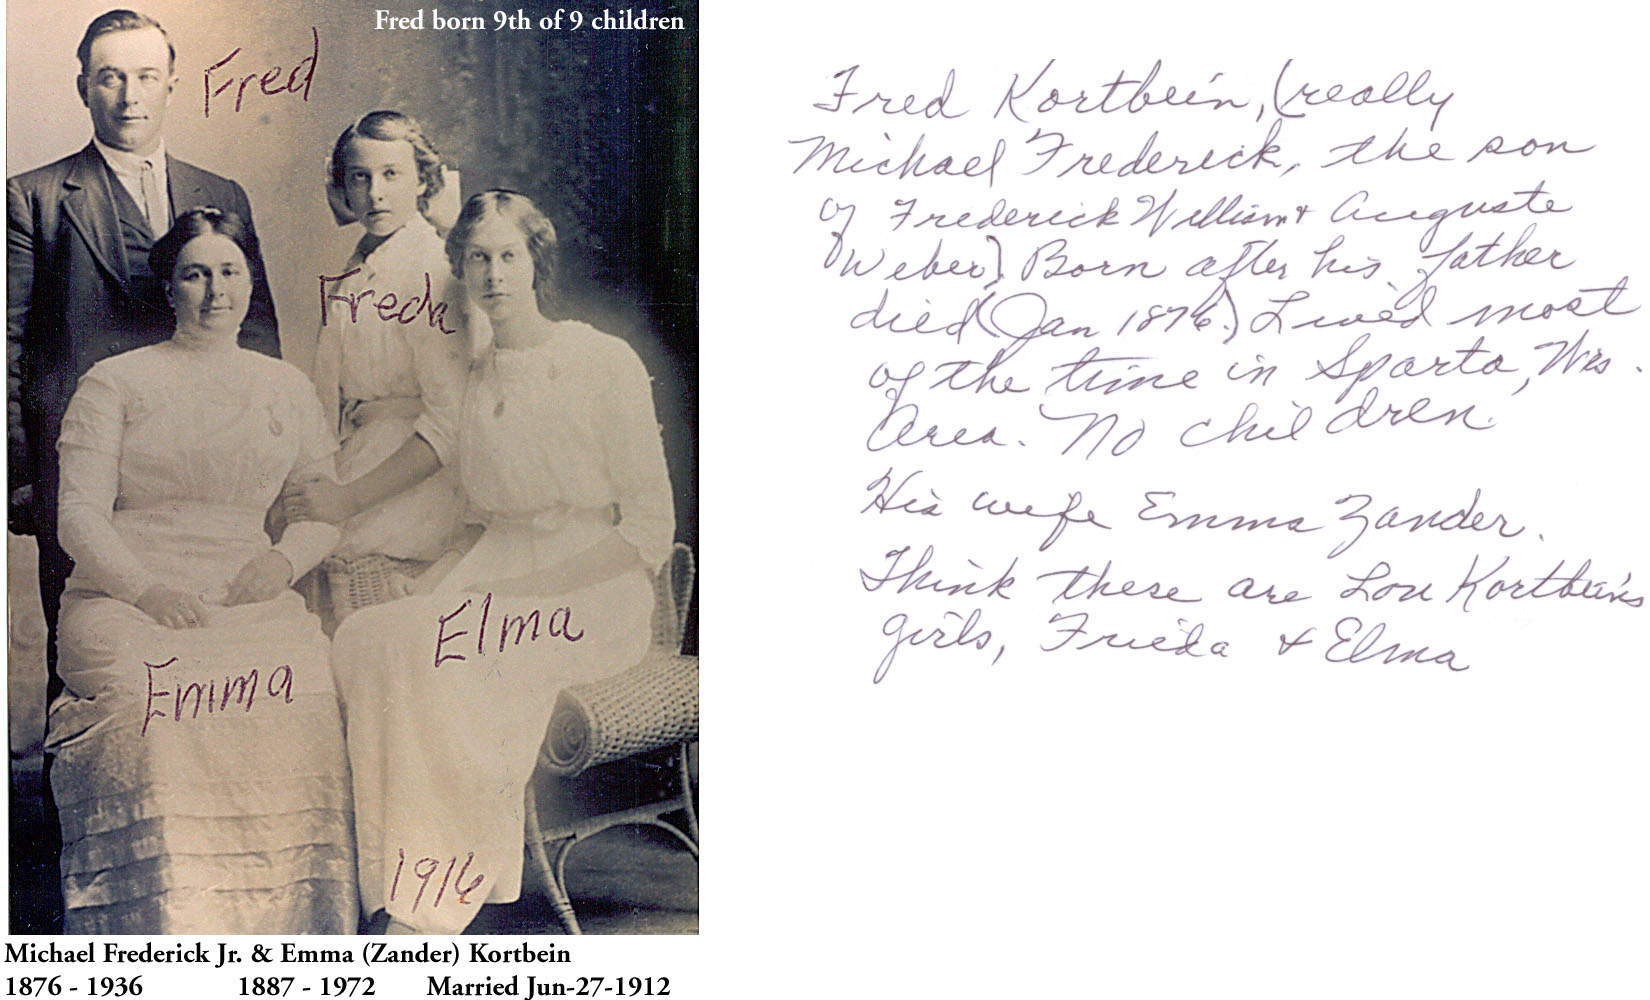 Fred born 9th of 9 children
Fred
Freda
Elma
Emma
1916
Michael Frederick Jr. & Emma (Zander) Kortbein
1876 - 1936 1887 - 1972 Married Jun-27-1912
Fred Kortbein, (really
Michael Frederick, the son
of Frederick William + Auguste
Weber) Born after his father
died (Jan 1876.) Lived most
of the time in Sparta, Wis.
Area. No children.
His wife Emma Zander.
Think these are Lou Kortbein's
girls, Frieda + Elma